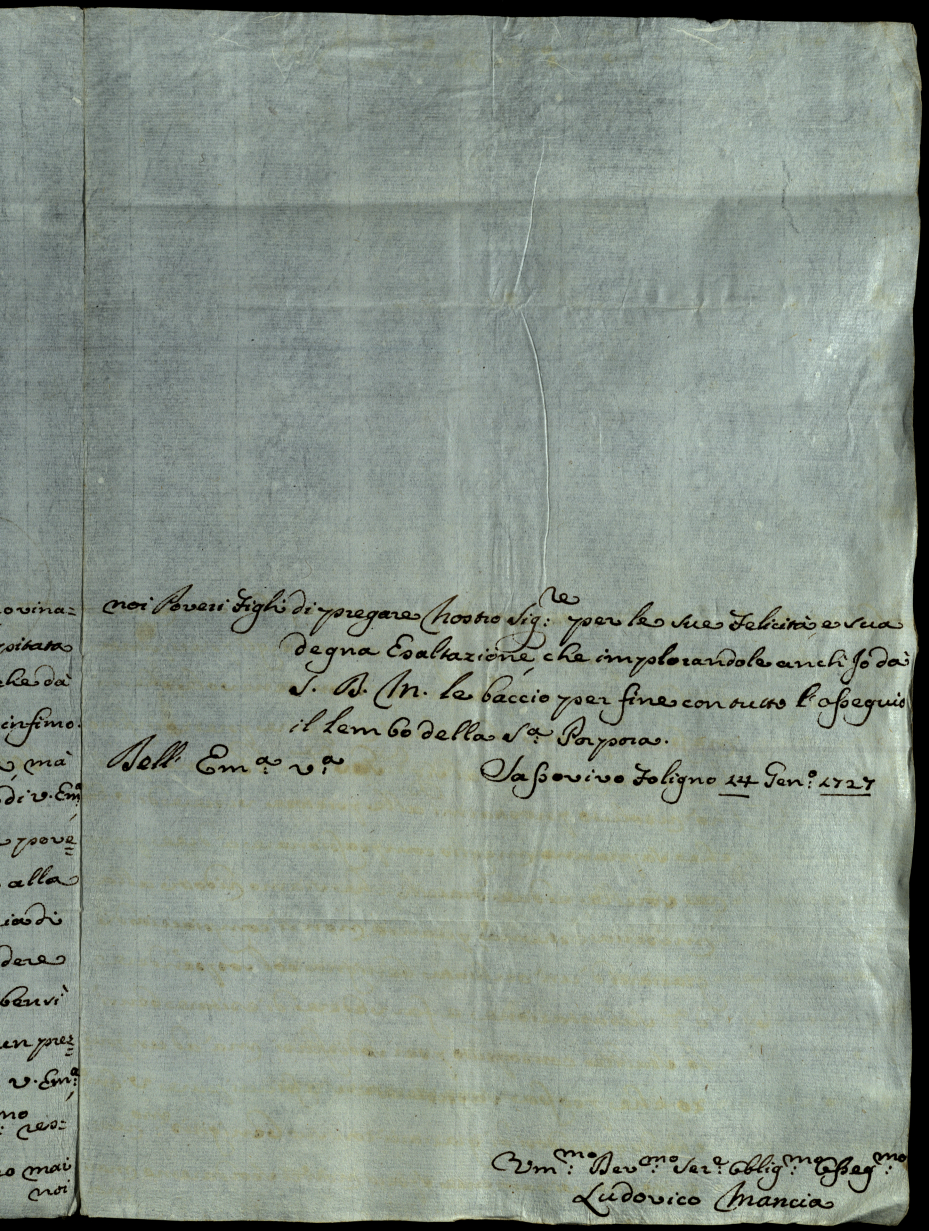 ovina=
pitata
che dà
infimo.
mà
di V. Em.ª
pove=
alla
ia di
dere
bensì
un prez=
V. Em.ª
mo res=
o mai
noi
noi Poveri Figli di pregare Nostro Sig.re per le sue Felicità e sua
degna Esaltazione, che implorandole anch Jo dà
S. B. M. le baccio per fine con tutto l'ossequio
il lembo della S.ª Porpora.
Dell' Em.ª V.ª
Sassovivo Foligno 14 Gen.º 1727
Um.mo Dev.mo Ser.e Oblig.mo Osseq.mo
Ludovico Mancia